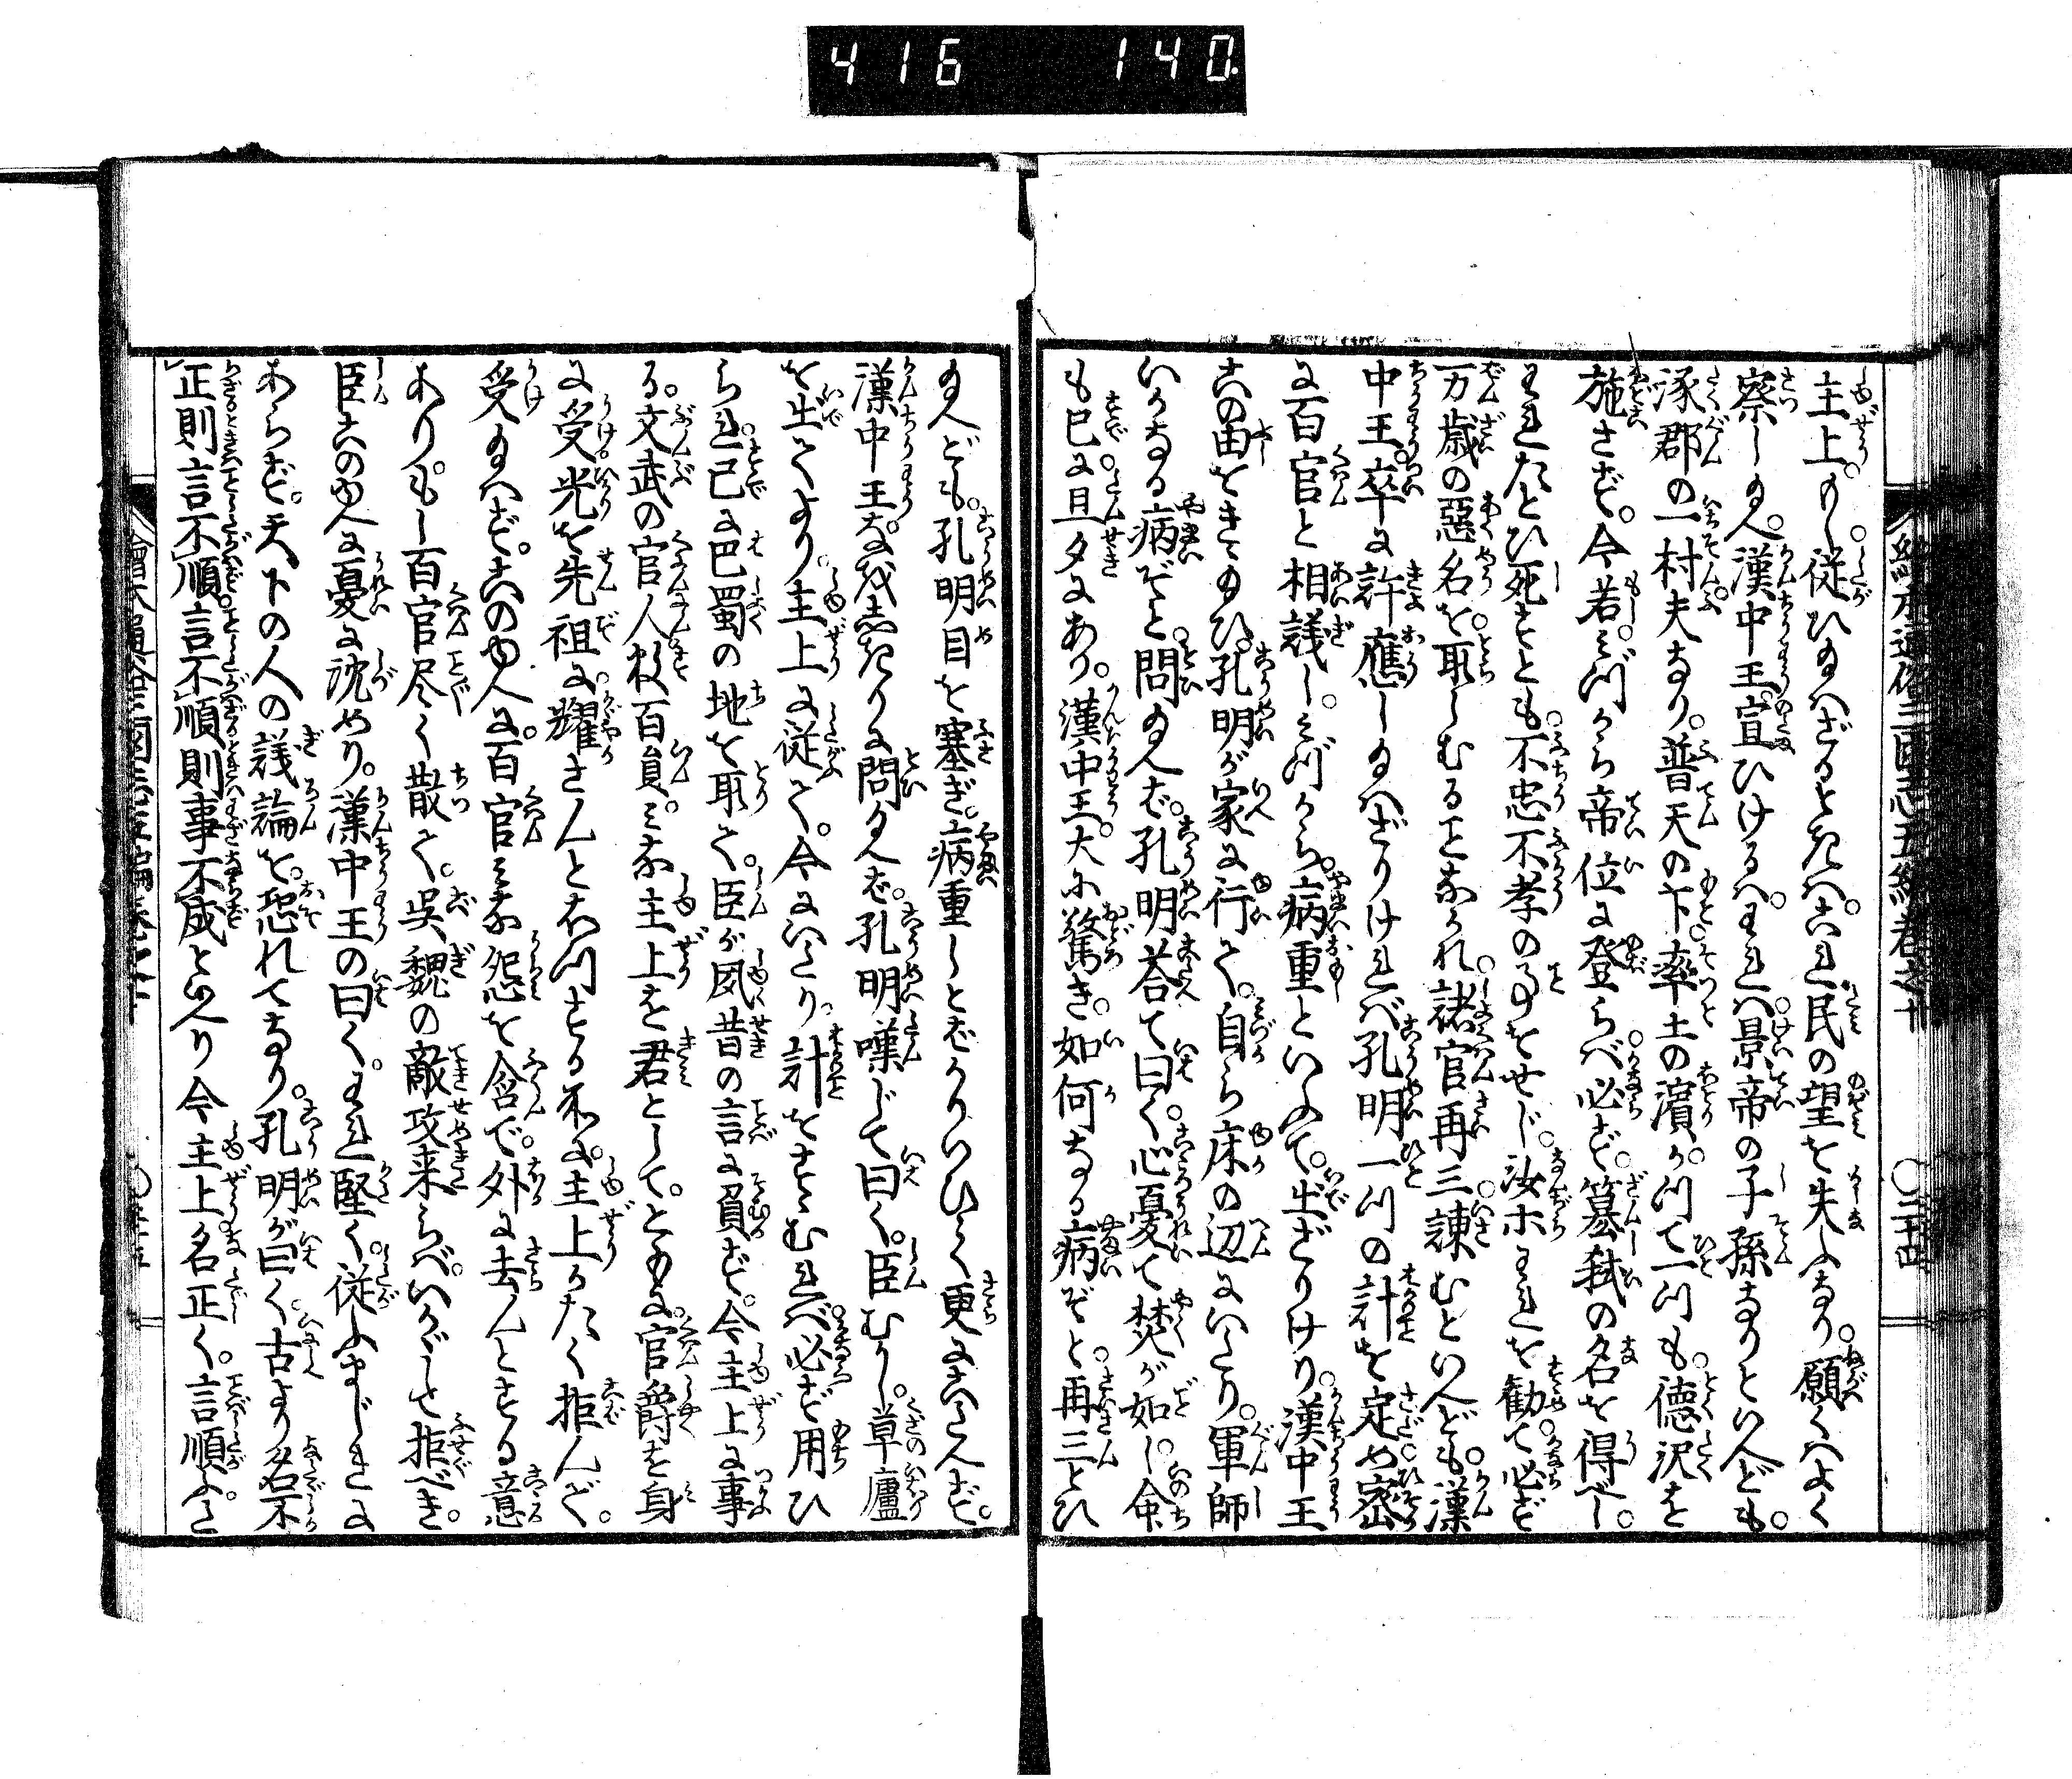 416 140
絵本通俗三国志五編巻之十 〇三十四
主上もし従ひ給はざるときは。これ民の望を失ふなり。願くはよく
察し給へ。漢中王宣ひけるは。われは景帝の子孫なりといへども。
涿郡の一村夫なり。普天の下。率土の濱。かつて一つも。徳沢を
施さず。今若みづから帝位に登らば。必ず。簒弑の名を得べし。
われたとひ死すとも。不忠不孝の事をせじ。汝ホわれを勧て。必ず
万歳の惡名を。取しむることなかれ。諸官再三諫むといへども。漢
中王。卒に許應し給はざりければ。孔明一つの計を定め。密
に百官と相議し。みづから。病重といふて。出ざりけり。漢中王
この由をきゝ給ひ。孔明が家に行て。自ら床の辺にいたり。軍師
いかなる病ぞと。問給へば。孔明荅て曰く。心憂て焚が如し。命
も已に。旦夕にあり。漢中王。大に驚き。如何なる病ぞと。再三とひ
給へども。孔明目を塞ぎ。病重しとばかりいひて更にこたへず。
漢中王。なをしきりに問給へば。孔明嘆じて曰く。臣むかし。草廬
を出てより。主上に従て。今にいたり。計をすゝむれば。必ず用ひ
られ。已に巴蜀の地を取て。臣が夙昔の言に負ず。今主上に事
る。文武の官人数百員。みな主上を君として。ともに。官爵を身
に受。光を先祖に耀さんとおもつする処に。主上かたく拒んで。
受給はず。このゆへに。百官みな怨を含で。外に去んとする意
あり。もし百官尽く散て。呉魏の敵攻来らば。いかゞして拒べき。
臣このゆへに憂に沈めり。漢中王の曰く。われ堅く。従ふまじきに
あらず。天下の人の議論を。恐れてなり。孔明が曰く。古より名不
正則言不順。言不順則事不成と見へり今主上名正く。言順ふこ
絵本通俗三國志五編巻之十 〇三十五